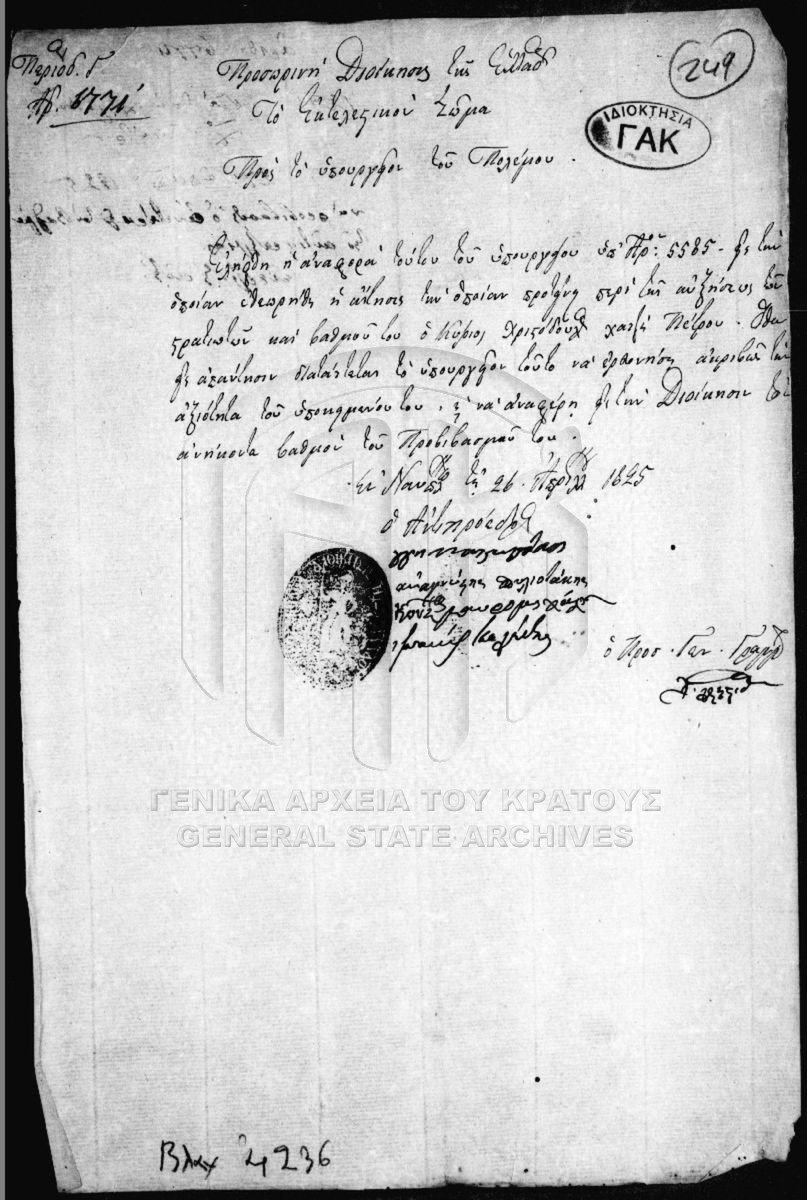 Περίοδ. Γ
Αρ. 8771
Προσωρινὴ Διοίκησις τῆς Ἑλλάδ
Τὸ Ἐκτελεστικὸν Σῶμα
Πρὸς τὸ ὑπουργεῖον τοῦ Πολέμου.
249
ΙΔΙΟΚΤΗΣΙΑ
ΓΑΚ
Ἐλήφθη ἡ ἀναφορὰ τούτου τοῦ ὑπουργείου ὑπ' Ἀρ: 5585 - μὲ τὴν
ὁποίαν ἐθεωρήθη ἡ αἴτησις τὴν ὁποίαν προτείνει περὶ τῆς αὐξήσεως τῶν
στρατιωτῶν καὶ βαθμοῦ του ὁ Κύριος Χριστόδουλ χατζῆ Πέτρου.
μὲ ἀπάντησιν διατάττεται τὸ ὑπουργεῖον τοῦτο νὰ ἐρευνήσῃ ἀκριβῶς τὴν
ἀξιότητα τοῦ ὑποκειμένου του, καὶ νὰ ἀναφέρῃ μὲ τὴν Διοίκησιν τὸν
ἀνήκοντα βαθμὸν τοῦ Προβιβασμοῦ του.
Ἐν Ναυπλ τῇ 26 Ἀπριλλ 1825
ὁ Ἀντιπρόεδρ
ἀναγνώστης σπιλιοτάκης
ὁ Προσ. Γεν. Γραμμ
ΓΕΝΙΚΑ ΑΡΧΕΙΑ ΤΟΥ ΚΡΑΤΟΥΣ
GENERAL STATE ARCHIVES
Βλαχ 4236